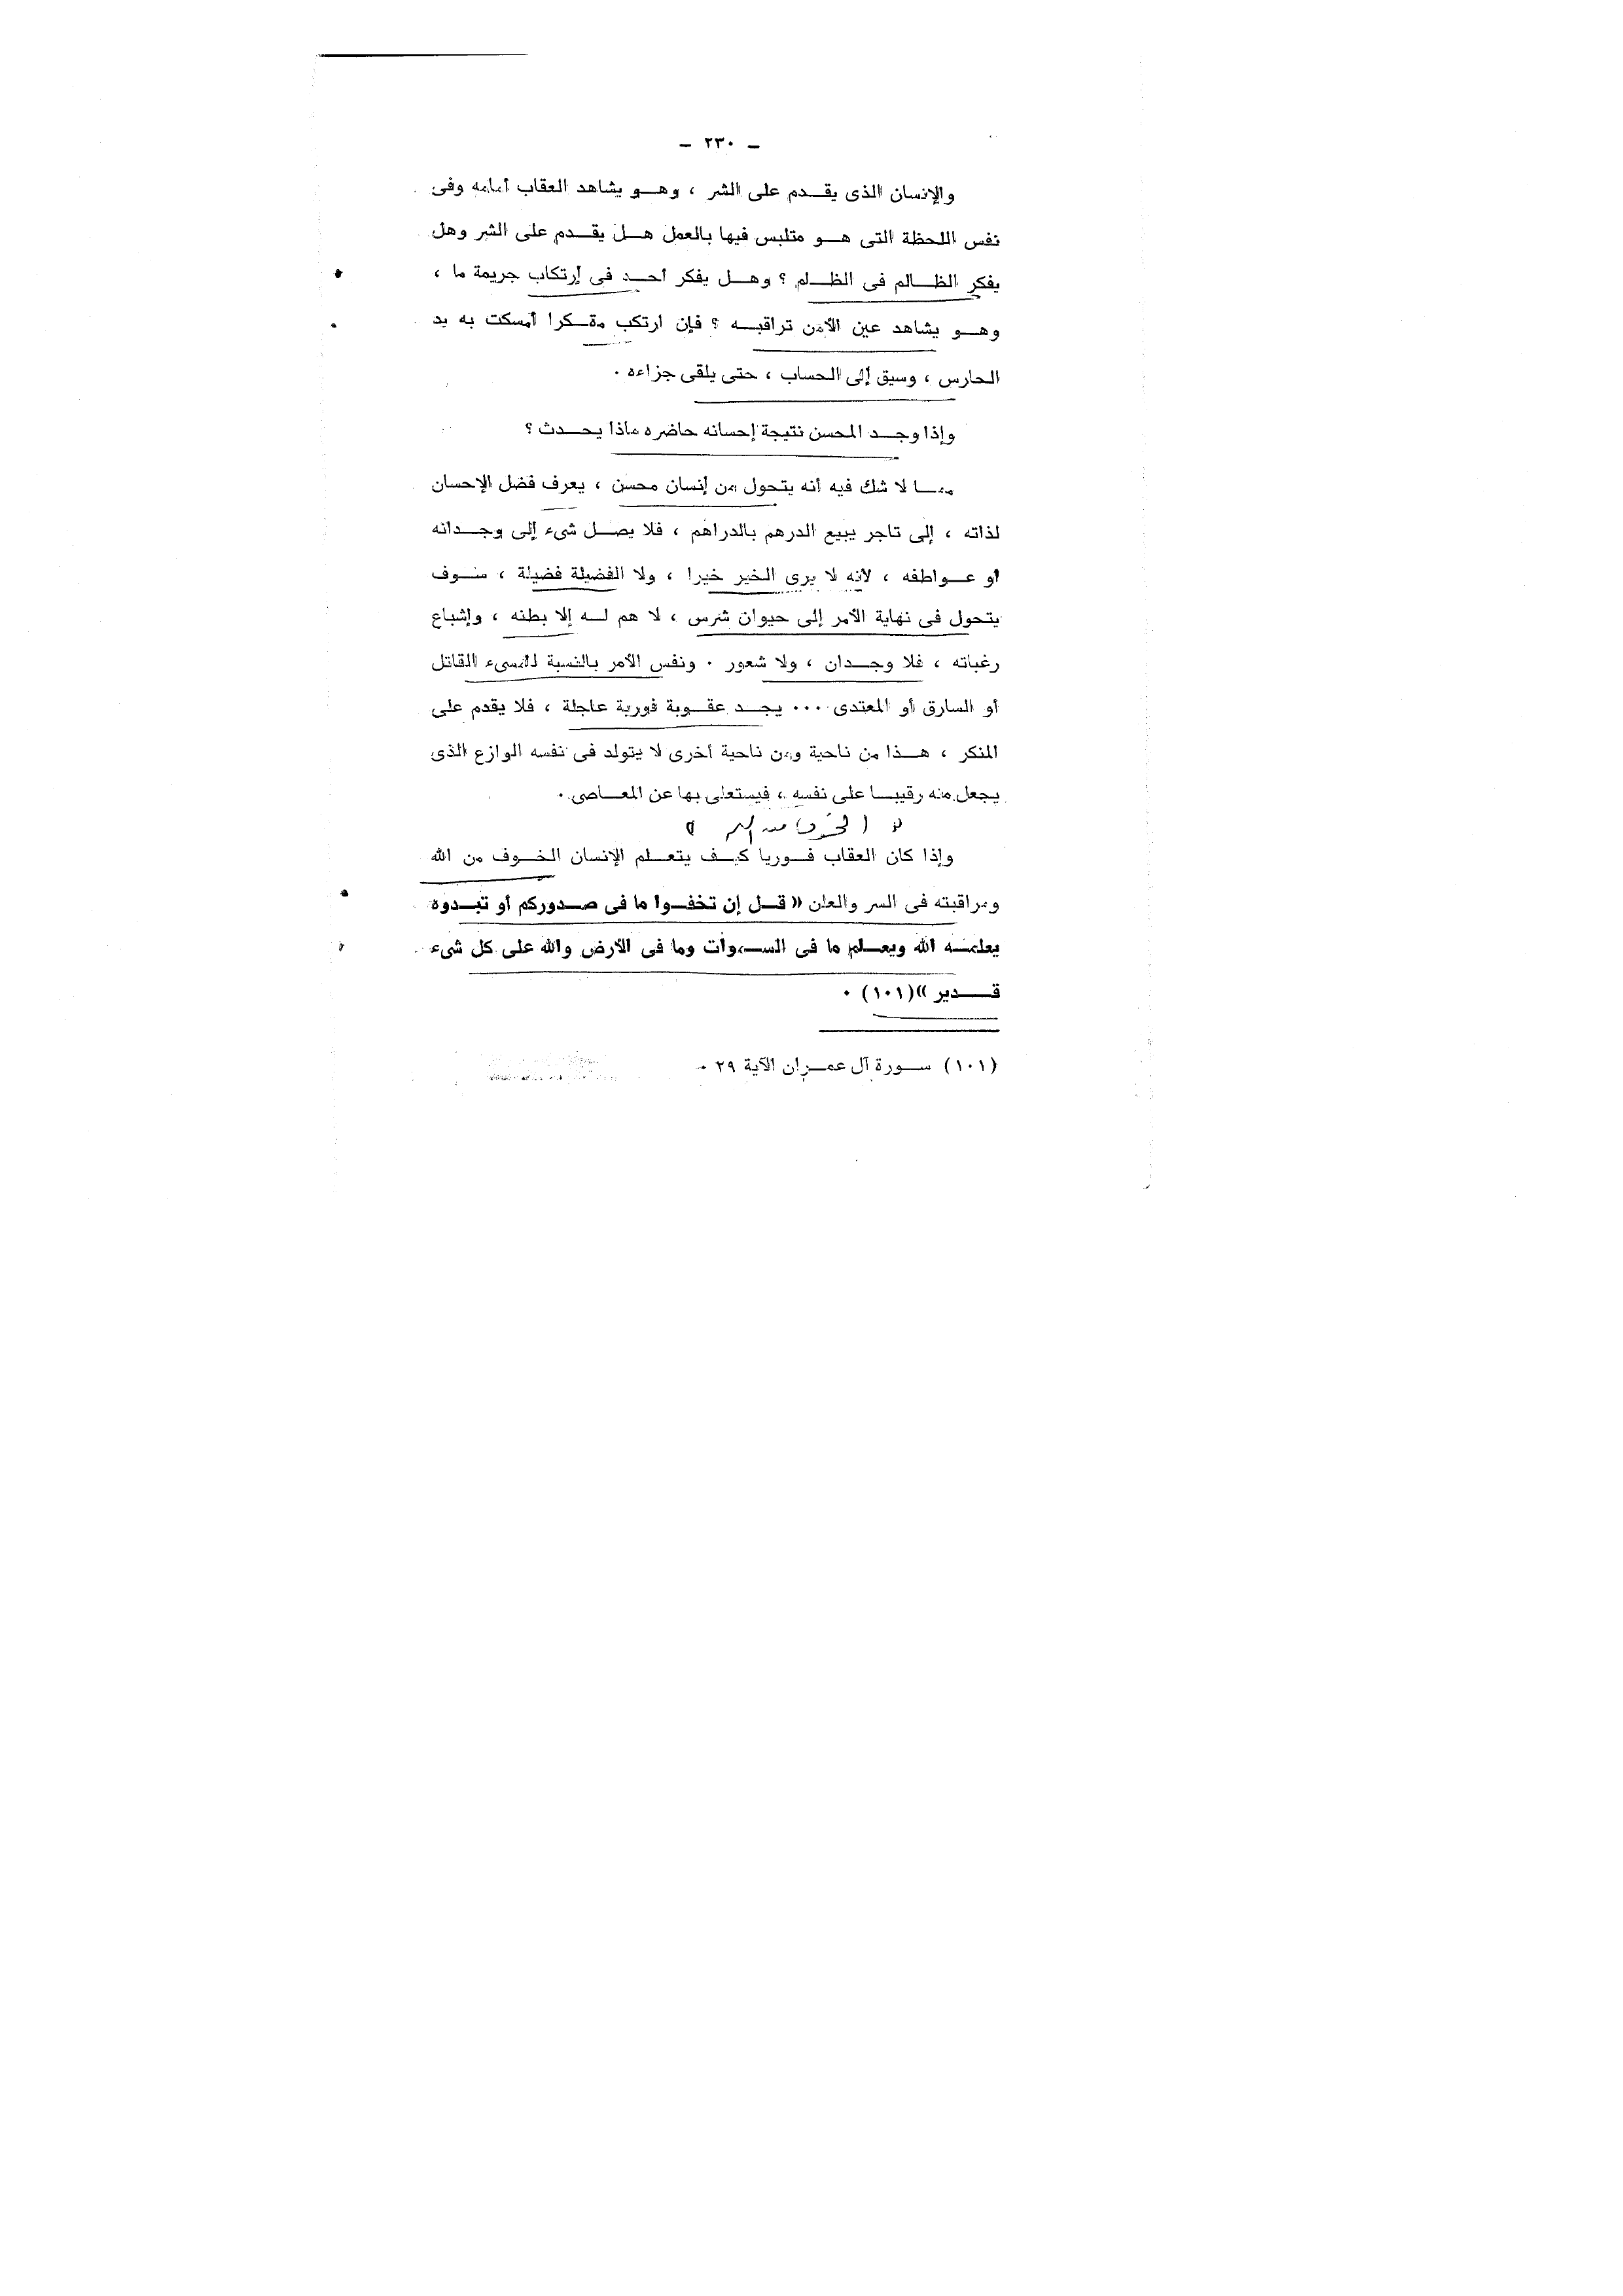 — ٢٣٠ —
والإنسان الذى يقدم على الشر ، وهو يشاهد العقاب أمامه وفى
نفس اللحظة التى هو متلبس فيها بالعمل هل يقدم على الشر وهل
يفكر الظالم فى الظلم ؟ وهل يفكر أحد فى إرتكاب جريمة ما ،
وهو يشاهد عين الأمن تراقبه ؟ فإن ارتكب منكرا أمسكت به يد
الحارس ، وسيق إلى الحساب ، حتى يلقى جزاءه .
وإذا وجد المحسن نتيجة إحسانه حاضره ماذا يحدث ؟
مما لا شك فيه أنه يتحول من إنسان محسن ، يعرف فضل الإحسان
لذاته ، إلى تاجر يبيع الدرهم بالدراهم ، فلا يصل شىء إلى وجدانه
أو عواطفه ، لأنه لا يرى الخير خيرا ، ولا الفضيلة فضيلة ، سوف
يتحول فى نهاية الأمر إلى حيوان شرس ، لا هم له إلا بطنه ، وإشباع
رغباته ، فلا وجدان ، ولا شعور . ونفس الأمر بالنسبة للمسىء القاتل
أو السارق أو المعتدى ... يجد عقوبة فورية عاجلة ، فلا يقدم على
المنكر ، هذا من ناحية ومن ناحية أخرى لا يتولد فى نفسه الوازع الذى
يجعل منه رقيبا على نفسه ، فيستعلى بها عن المعاصى .
الخوف من الله
وإذا كان العقاب فوريا كيف يتعلم الإنسان الخوف من الله
ومراقبته فى السر والعلن « قل إن تخفوا ما فى صدوركم أو تبدوه
يعلمه الله ويعلم ما فى السموات وما فى الأرض والله على كل شىء
قدير »(١٠١) .
(١٠١) سورة آل عمران الآية ٢٩ .